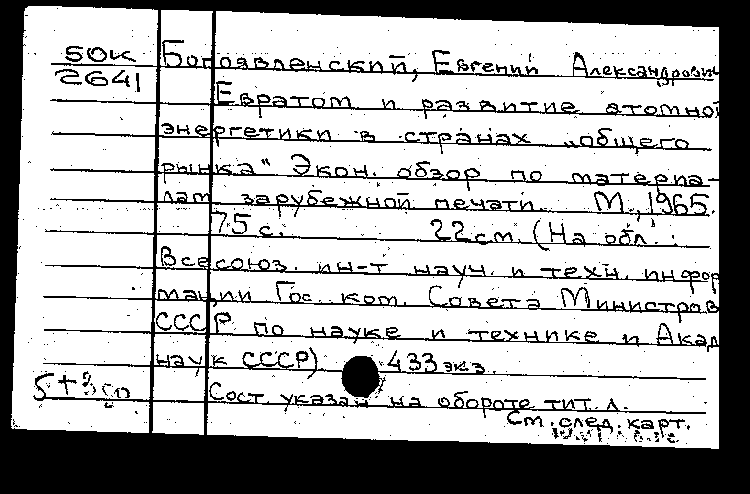 50К Богоявленский, Евгений Александрович
2641
Евратом и развитие атомной
энергетики в странах „общего
рынка" Экон. обзор по материа-
лам зарубежной печати. М., 1965.
75 с. 22 см. (На обл.:
Всесоюз. ин-т науч. и техн. инфор
мации Гос. ком. Совета Министров
СССР по науке и технике и Акад
наук СССР) 433 экз.
Сост. указан на обороте тит. л.
См. след. карт.